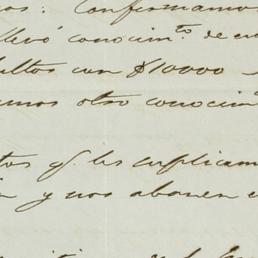 os: Confirmamos
llevó conocim.to de en
ultos con $10000
amos otro conocim
tos q. les suplicam
y nos abonen